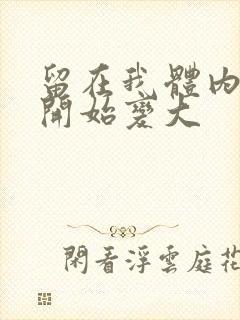 留在我體內
開始變大
閑看浮雲庭花